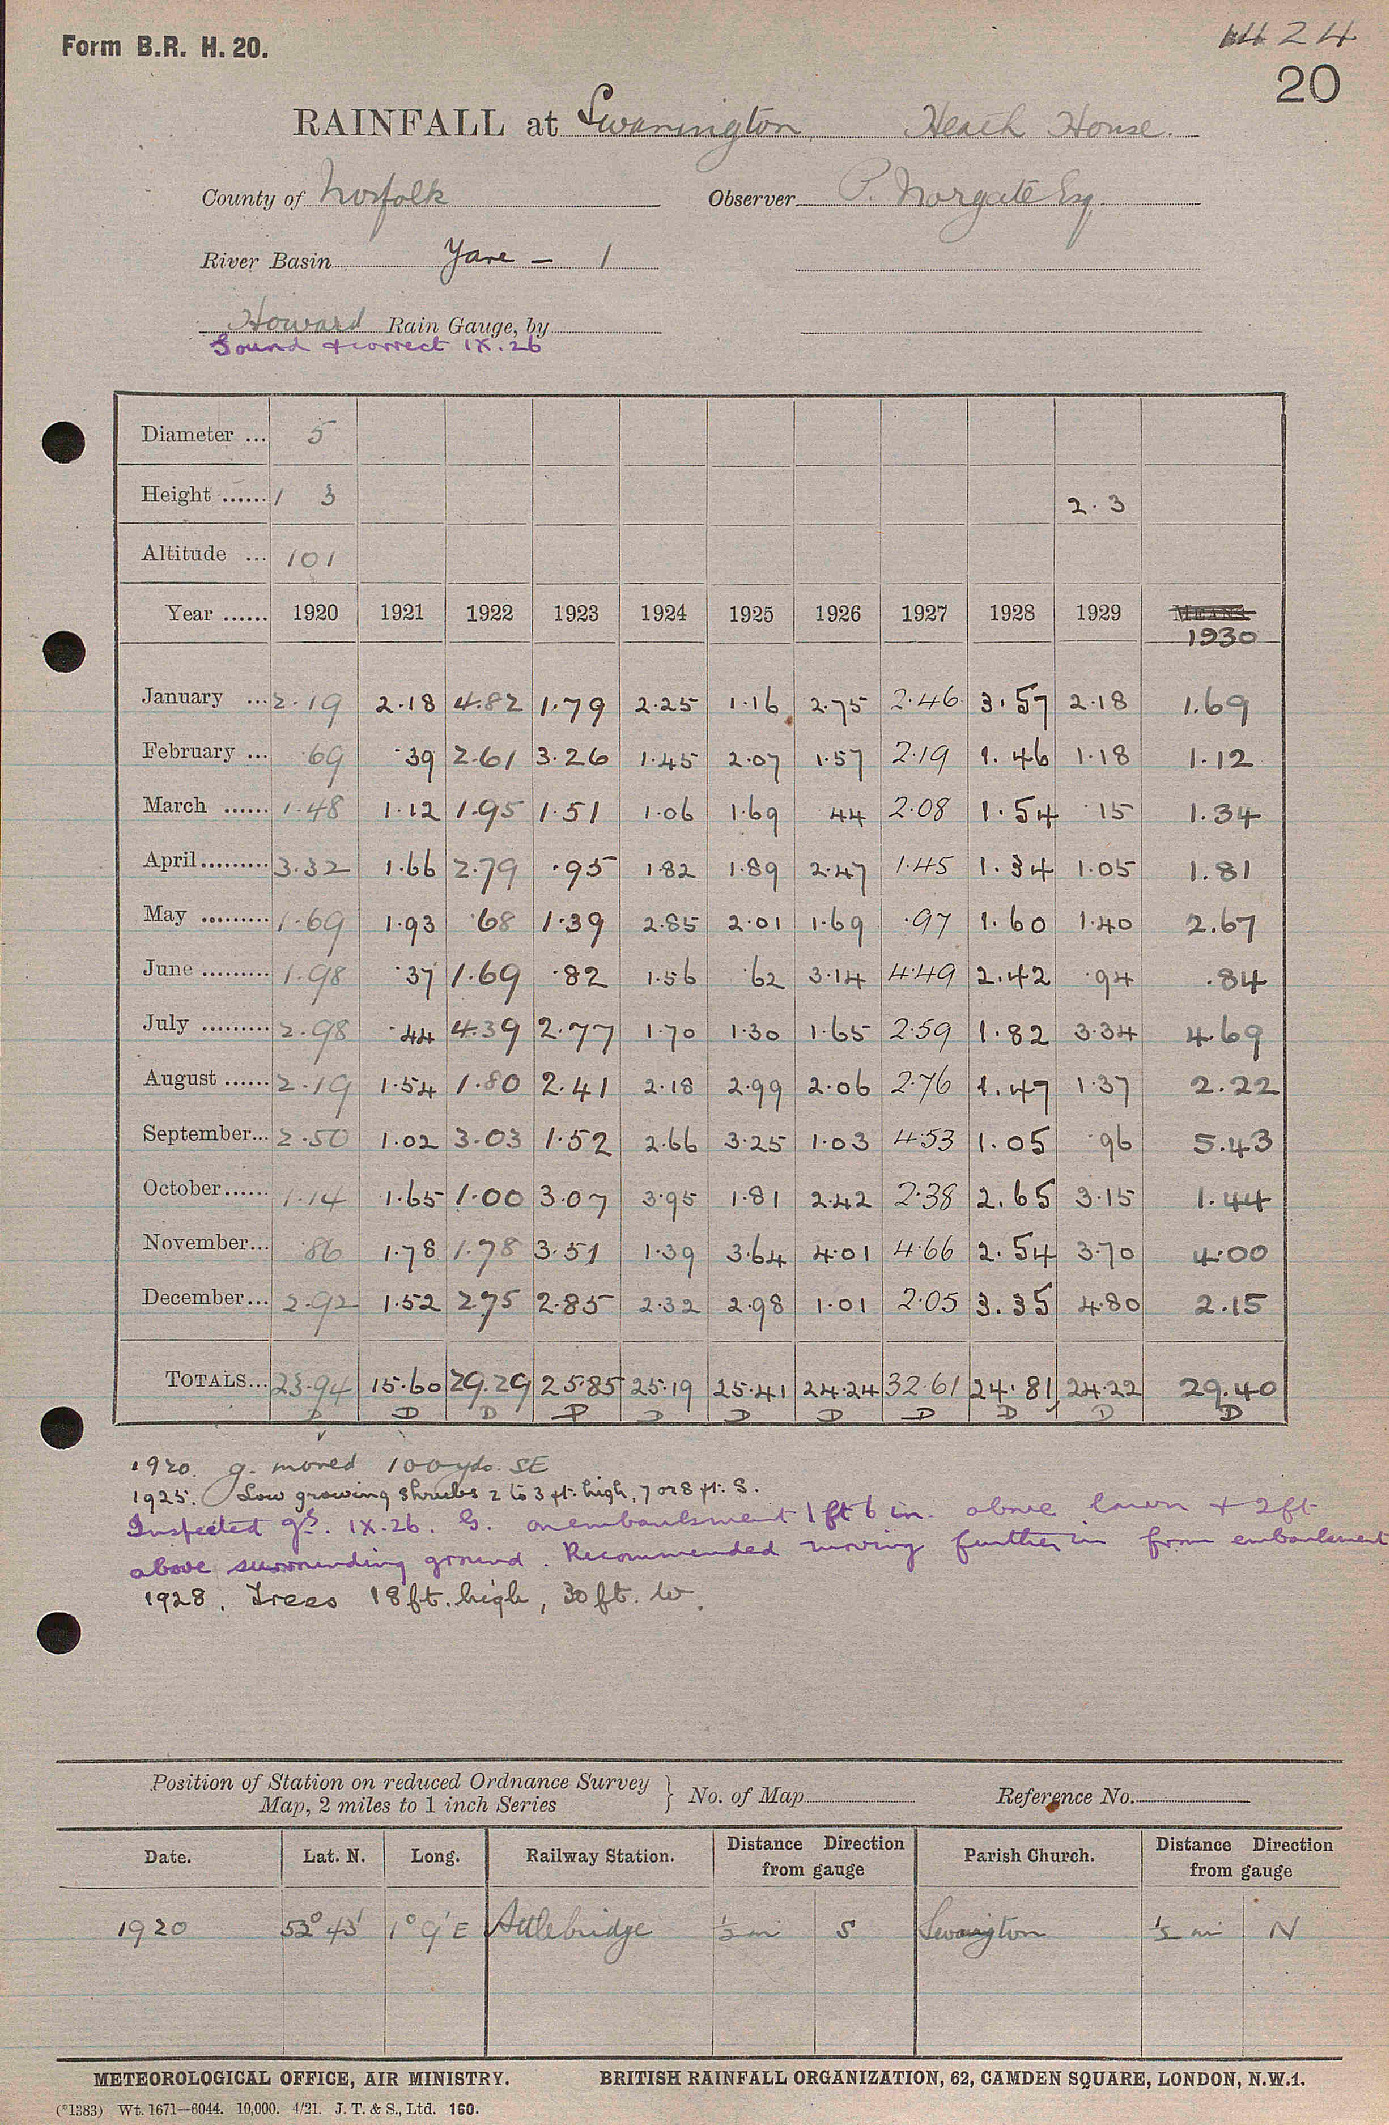 Form B.R. H. 20.
24
20
RAINFALL at Swannington Heath House.
County of Norfolk Observer P. Norgate Esq.
River Basin Yare - 1
Howard Rain Gauge, by
Sound & correct IX.26
Diameter ... 5
Height ...... 1 3 2.3
Altitude ... 101
Year ...... 1920 1921 1922 1923 1924 1925 1926 1927 1928 1929 MEANS
1930
January ... 2.19 2.18 4.82 1.79 2.25 1.16 2.75 2.46 3.57 2.18 1.69
February ... .69 .39 2.61 3.26 1.45 2.07 1.57 2.19 1.46 1.18 1.12
March ...... 1.48 1.12 1.95 1.51 1.06 1.69 .44 2.08 1.54 .15 1.34
April ......... 3.32 1.66 2.79 .95 1.82 1.89 2.47 1.45 1.34 1.05 1.81
May ......... 1.69 1.93 .68 1.39 2.85 2.01 1.69 .97 1.60 1.40 2.67
June ......... 1.98 .37 1.69 .82 1.56 .62 3.14 4.49 2.42 .94 .84
July ......... 2.98 .44 4.39 2.77 1.70 1.30 1.65 2.59 1.82 3.34 4.69
August ...... 2.19 1.54 1.80 2.41 2.18 2.99 2.06 2.76 1.47 1.37 2.22
September... 2.50 1.02 3.03 1.52 2.66 3.25 1.03 4.53 1.05 .96 5.43
October ...... 1.14 1.65 1.00 3.07 3.95 1.81 2.42 2.38 2.65 3.15 1.44
November... .86 1.78 1.78 3.51 1.39 3.64 4.01 4.66 2.54 3.70 4.00
December... 2.92 1.52 2.75 2.85 2.32 2.98 1.01 2.05 3.35 4.80 2.15
TOTALS... 23.94 15.60 29.29 25.85 25.19 25.41 24.24 32.61 24.81 24.22 29.40
D D D D D D D D D D D
1920. g. moved 100 yds. SE
1925. Low growing shrubs 2 to 3 ft. high, 7 or 8 ft. S.
Inspected IX.26. G. on embankment 1 ft 6 in. above lawn & 2 ft
above surrounding ground. Recommended moving further in from embankment
1928. Trees 18 ft. high, 30 ft. W.
Position of Station on reduced Ordnance Survey
Map, 2 miles to 1 inch Series } No. of Map Reference No.
Date. Lat. N. Long. Railway Station. Distance Direction from gauge Parish Church. Distance Direction from gauge
1920 52° 43' 1° 9' E Attlebridge ½ mi S Swannington ½ mi N
METEOROLOGICAL OFFICE, AIR MINISTRY. BRITISH RAINFALL ORGANIZATION, 62, CAMDEN SQUARE, LONDON, N.W.1.
(*1383) Wt. 1671—6044. 10,000. 4/21. J. T. & S., Ltd. 160.